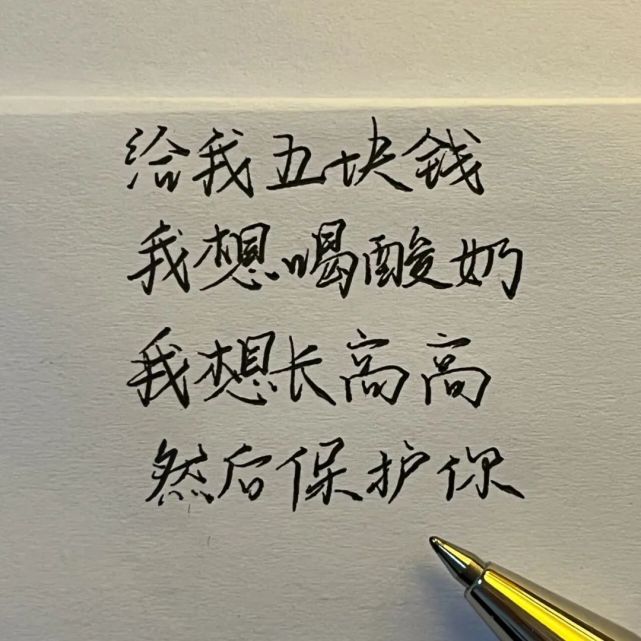 给我五块钱
我想喝酸奶
我想长高高
然后保护你